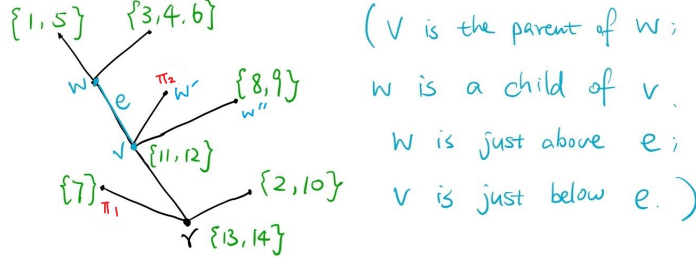 {1,5}
{3,4,6}
w
e
π2
w'
{8,9}
w''
v
{11,12}
{7}
π1
{2,10}
r
{13,14}
(v is the parent of w;
w is a child of v.
w is just above e;
v is just below e.)